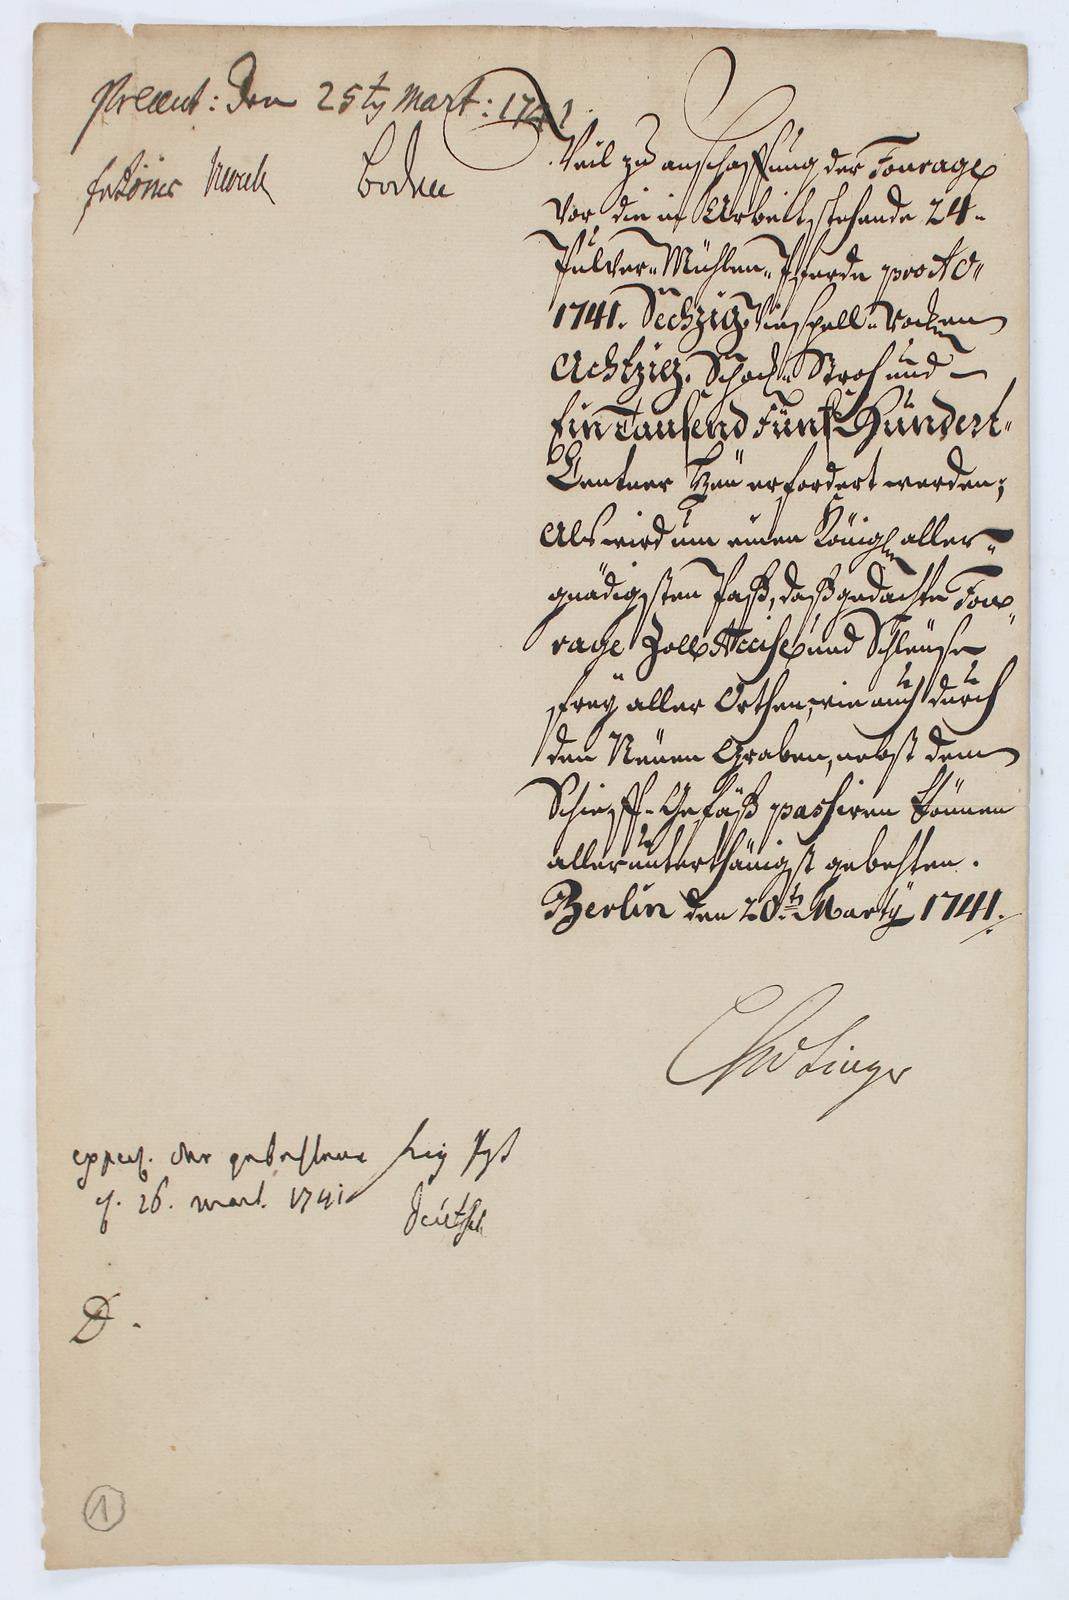 Præsent: Den 25 ty Mart: 1741
Boden
Weil zu anschaffung der Fourage
vor die in Arbeit stehende 24-
Pulver-Mühlen-Pferde pro Ao
1741. Sechzig. Winspell-Rocken
Achtzig. Schock-Stroh und
Ein Tausend Fünf Hundert-
Centner Heu erfordert werden;
Als wird um einen Königl.n aller-
gnädigsten Paß, daß gedachte Fou-
rage Zoll Accise und Schleuse
frey aller Orthen, wie auch durch
den Neuen Graben, nebst dem
Schieff-Gefäß passiren können
allerunterthänigst gebehten.
Berlin den 20.ty Marty 1741.
exped. der gebehtene Paß
d. 26. mart. 1741
D.
1